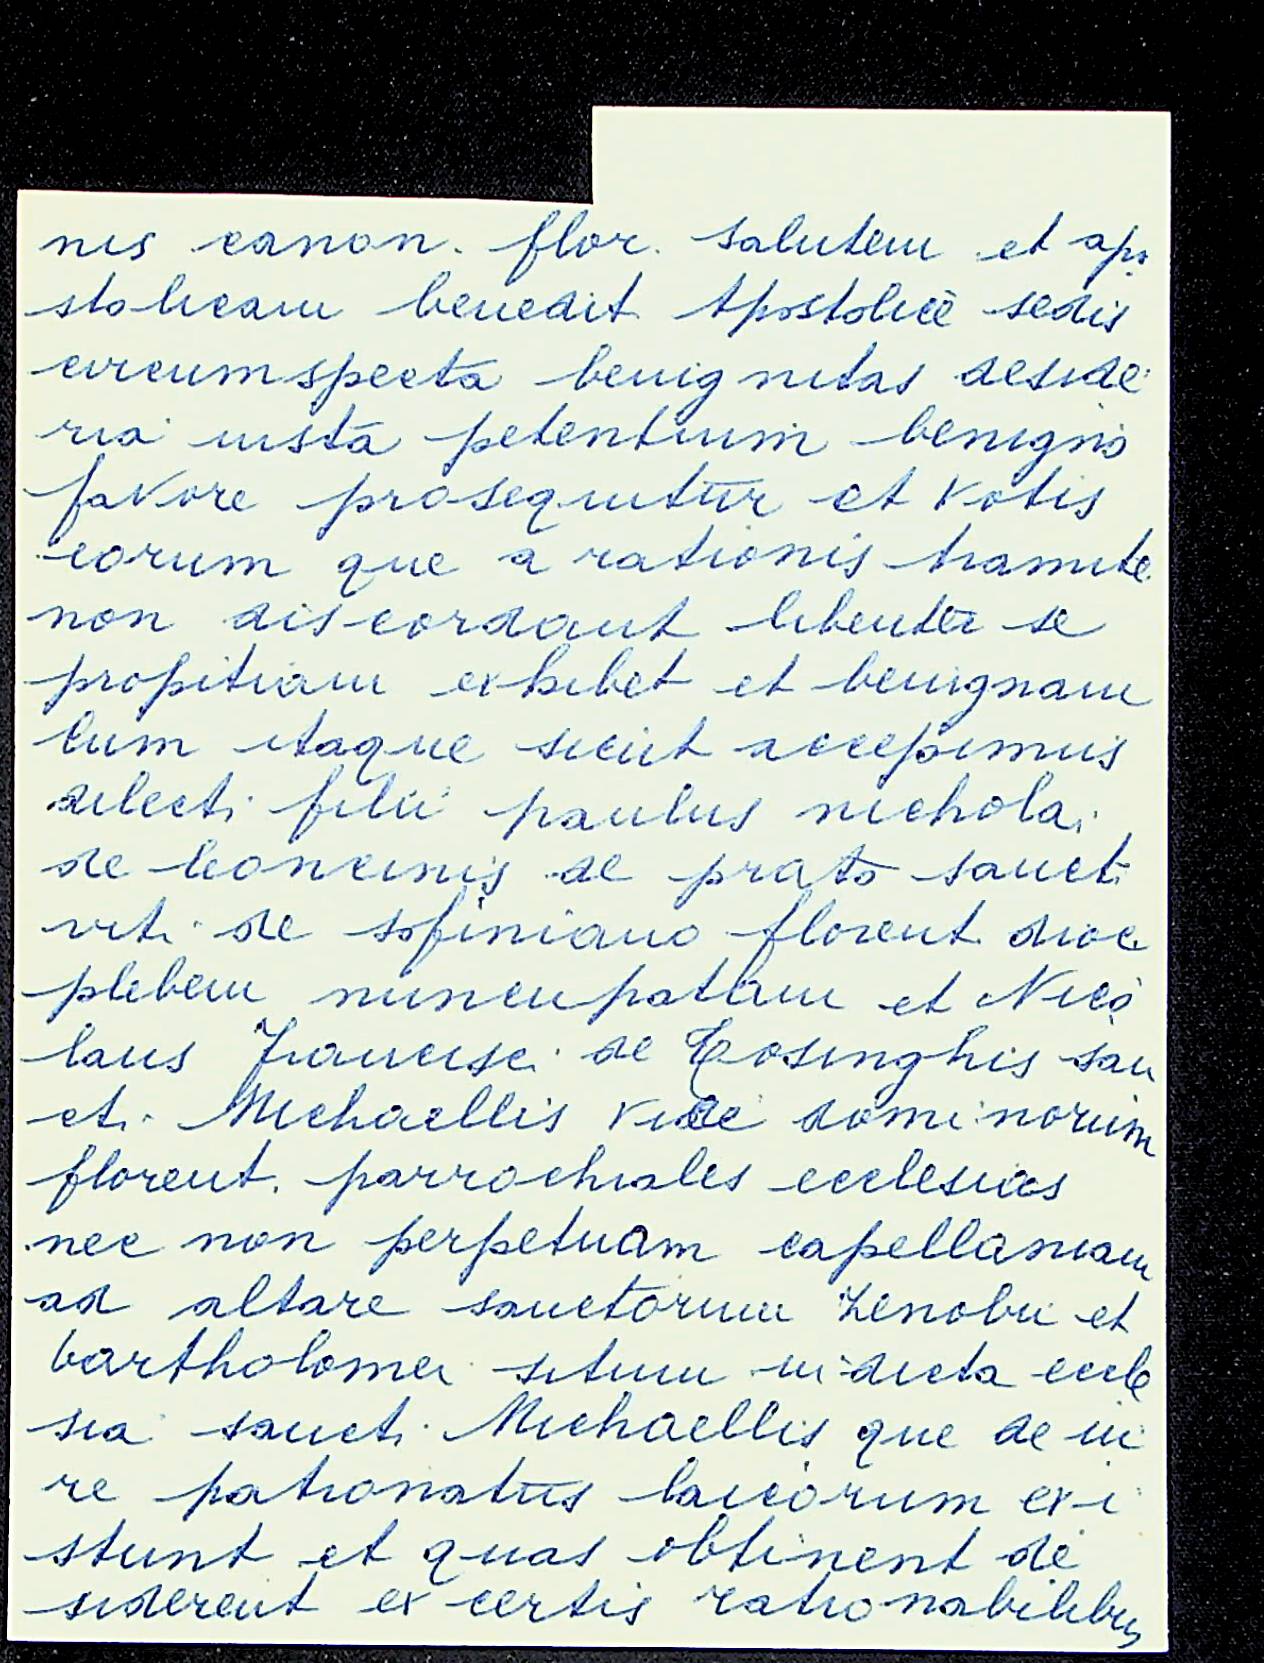 nis canon. flor. salutem et apo
stolicam benedict Apostolicè sedis
circumspecta benignitas deside
ria iusta petentium benigno
favore prosequitur et votis
eorum que a rationis tramite
non discordant libenter se
propitiam exhibet et benignam
Cum itaque sicut accepimus
dilecti filii paulus nicholai
de leoncinis de prato sancti
viti de sofiniano florent dioc
plebem nuncupatam et Nico
laus Francisci de Tosinghis san
cti Michaellis vice dominorum
florent. parrochiales ecclesias
nec non perpetuam capellaniam
ad altare sanctorum Zenobii et
bartholomei situm in dicta eccle
sia sancti Michaellis que de iu
re patronatus laicorum exi
stunt et quas obtinent de
siderent ex certis rationabilibus